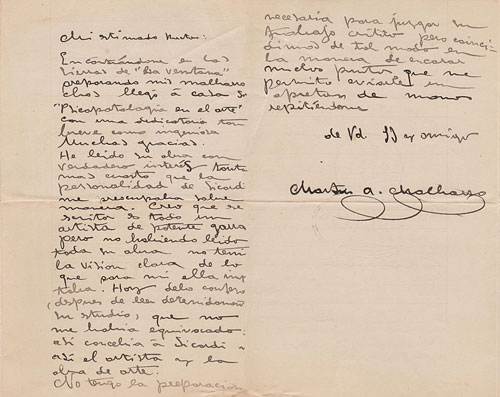 Mi estimado
Encontrándome en las
Sierras de "La Ventana"
preparando mis malhara
chos llegó á casa su
"Psicopatología en el arte"
con una dedicatoria tan
breve como ingeniosa
Muchas gracias.
He leido su obra con
verdadero interés tanto
mas cuanto que la
personalidad de Sicardi
me preocupaba sobre
manera. Creo que se
escritor es todo un
artista de potente garra
pero no habiendo leido
toda su obra no tenía
la vision clara de lo
que para mi ella im
plica. Hoy debo confesar
despues de leer detenidamente
su estudio, que no
me habia equivocado.
asi concebia á Sicardi
asi el artista y la
obra de arte.
No tengo la preparacion
necesaria para juzgar su
trabajo critico pero coinci
dimos de tal modo en
la manera de encarar
muchos puntos que me
permito enviarle un
apreton de manos
repitiendome
de Vd. SS y amigo
Martin A. Malharro